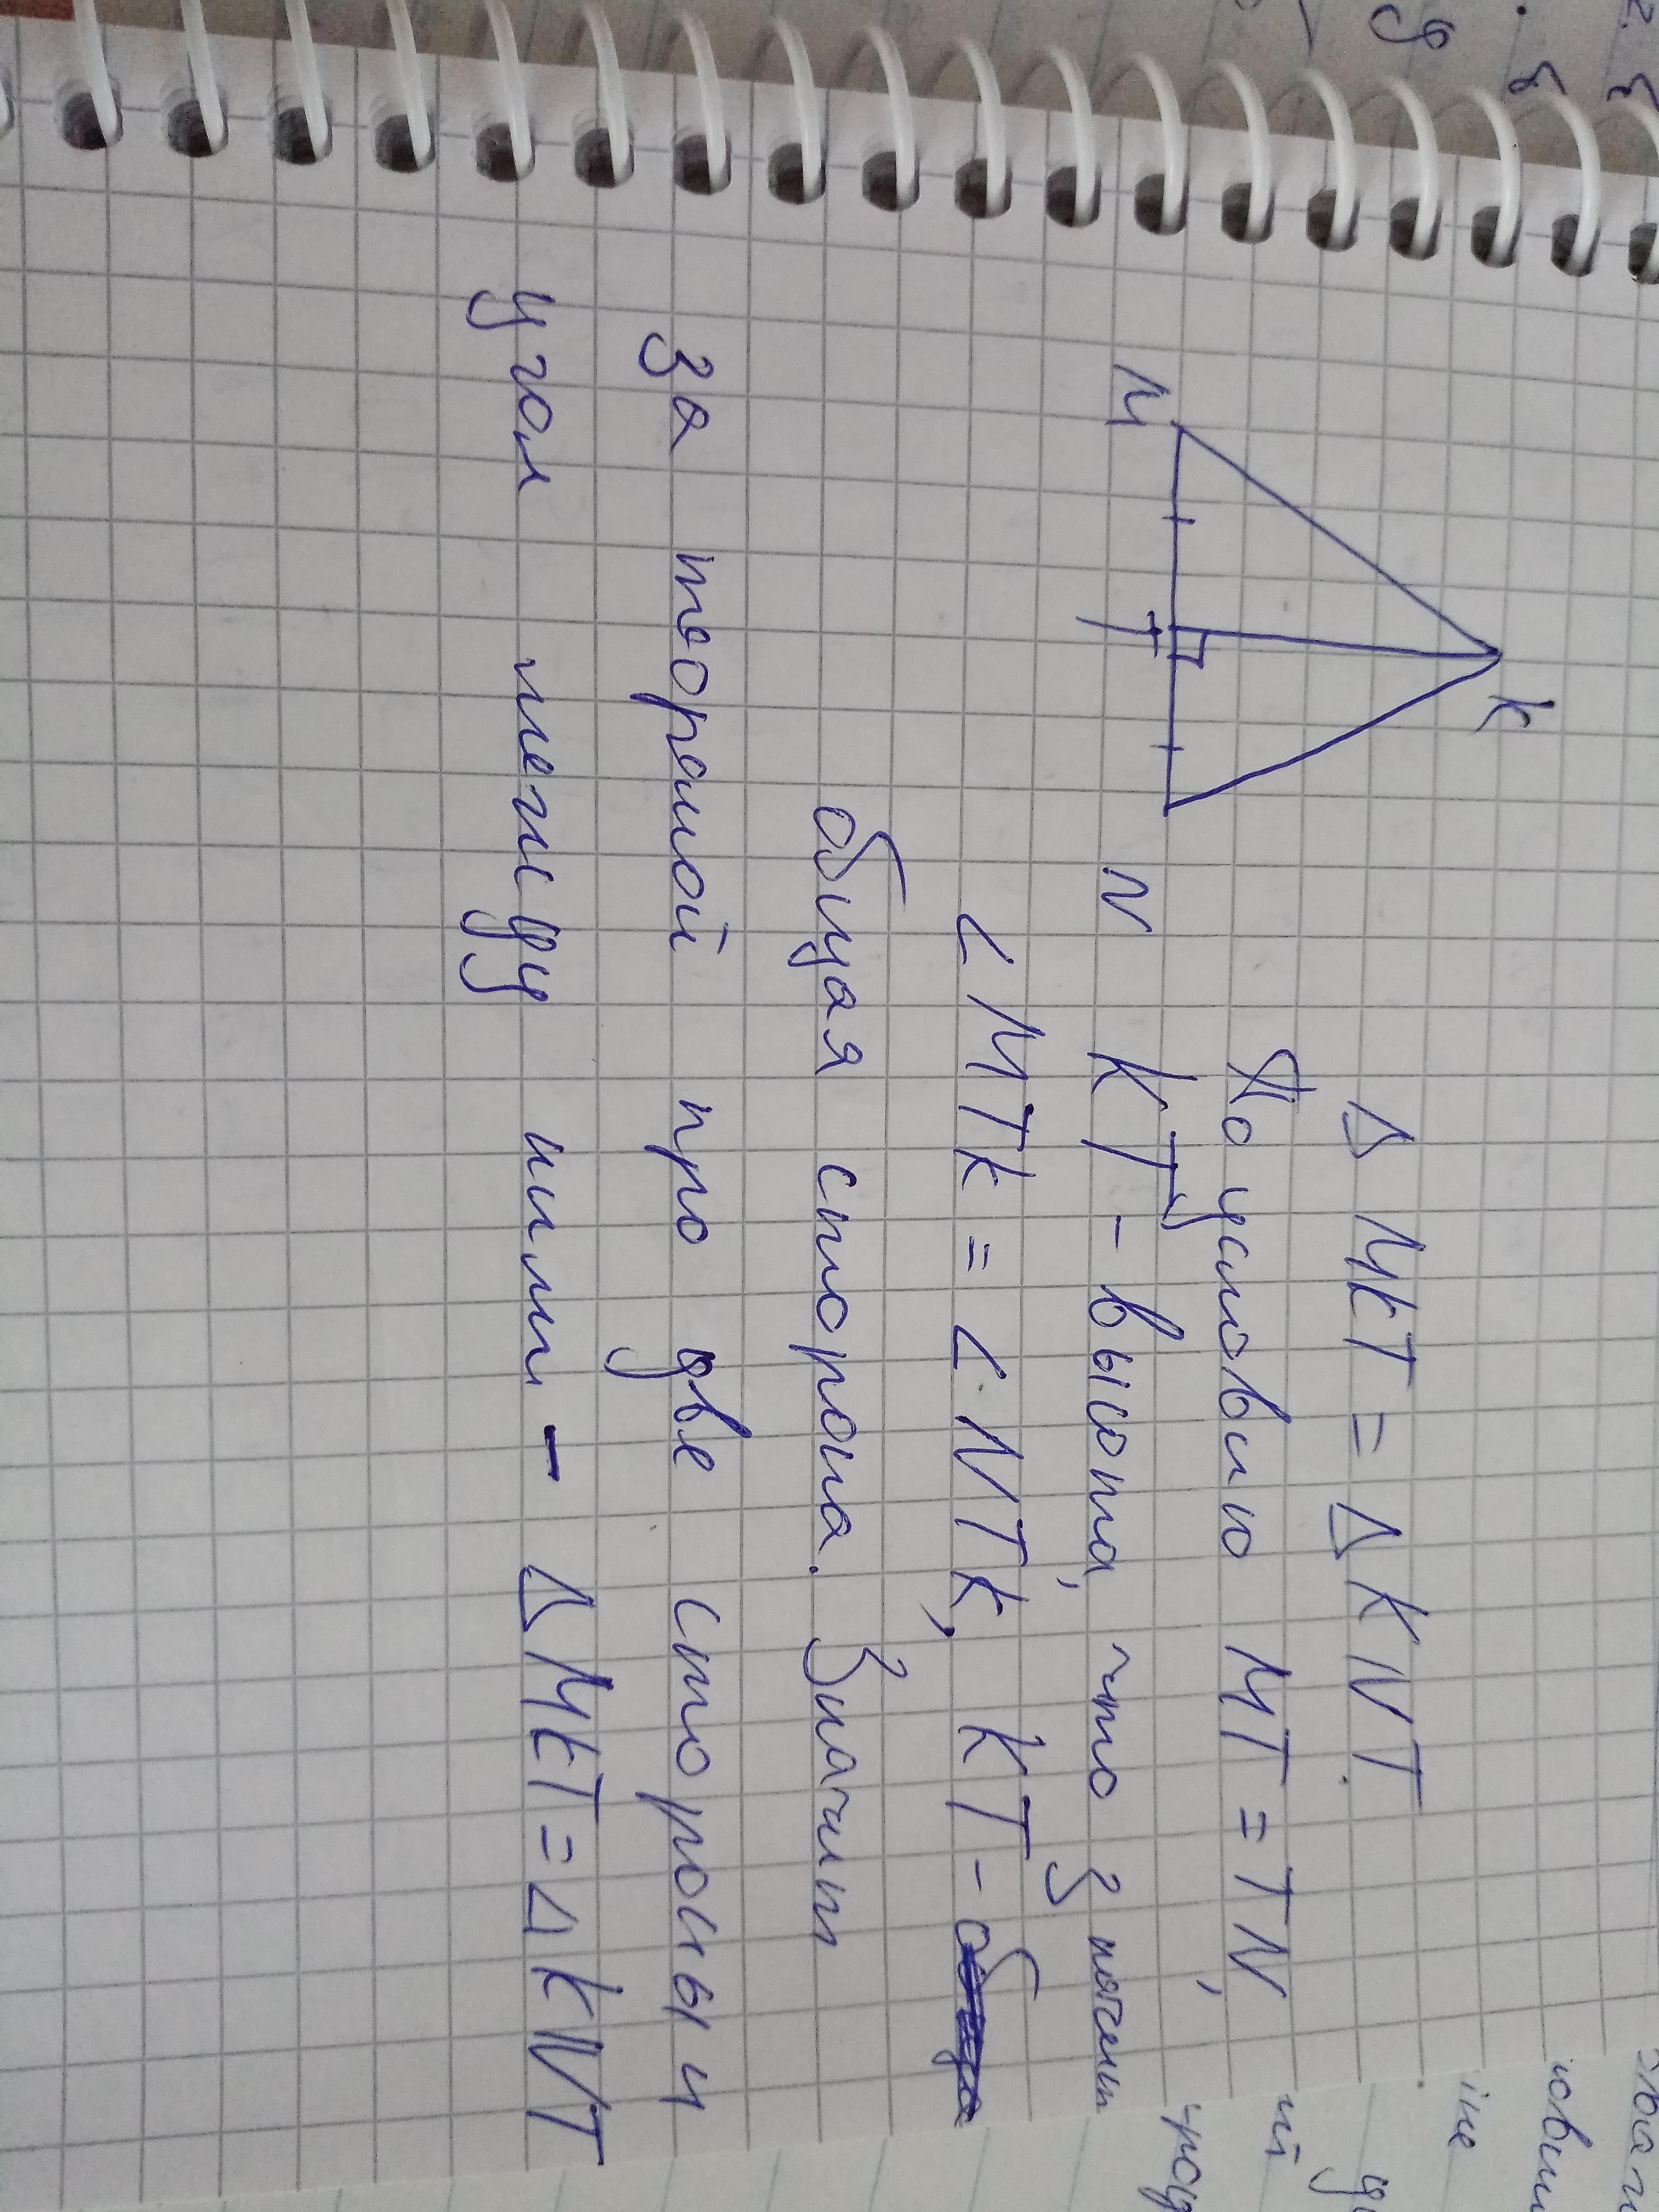 K
M
T
N
Δ MKT = Δ KNT.
По условию MT = TN,
KT - высота, что значит
∠ MTK = ∠ NTK, KT -
общая сторона. Значит
За теоремой про две стороны и
угол между ними - Δ MKT = Δ KNT